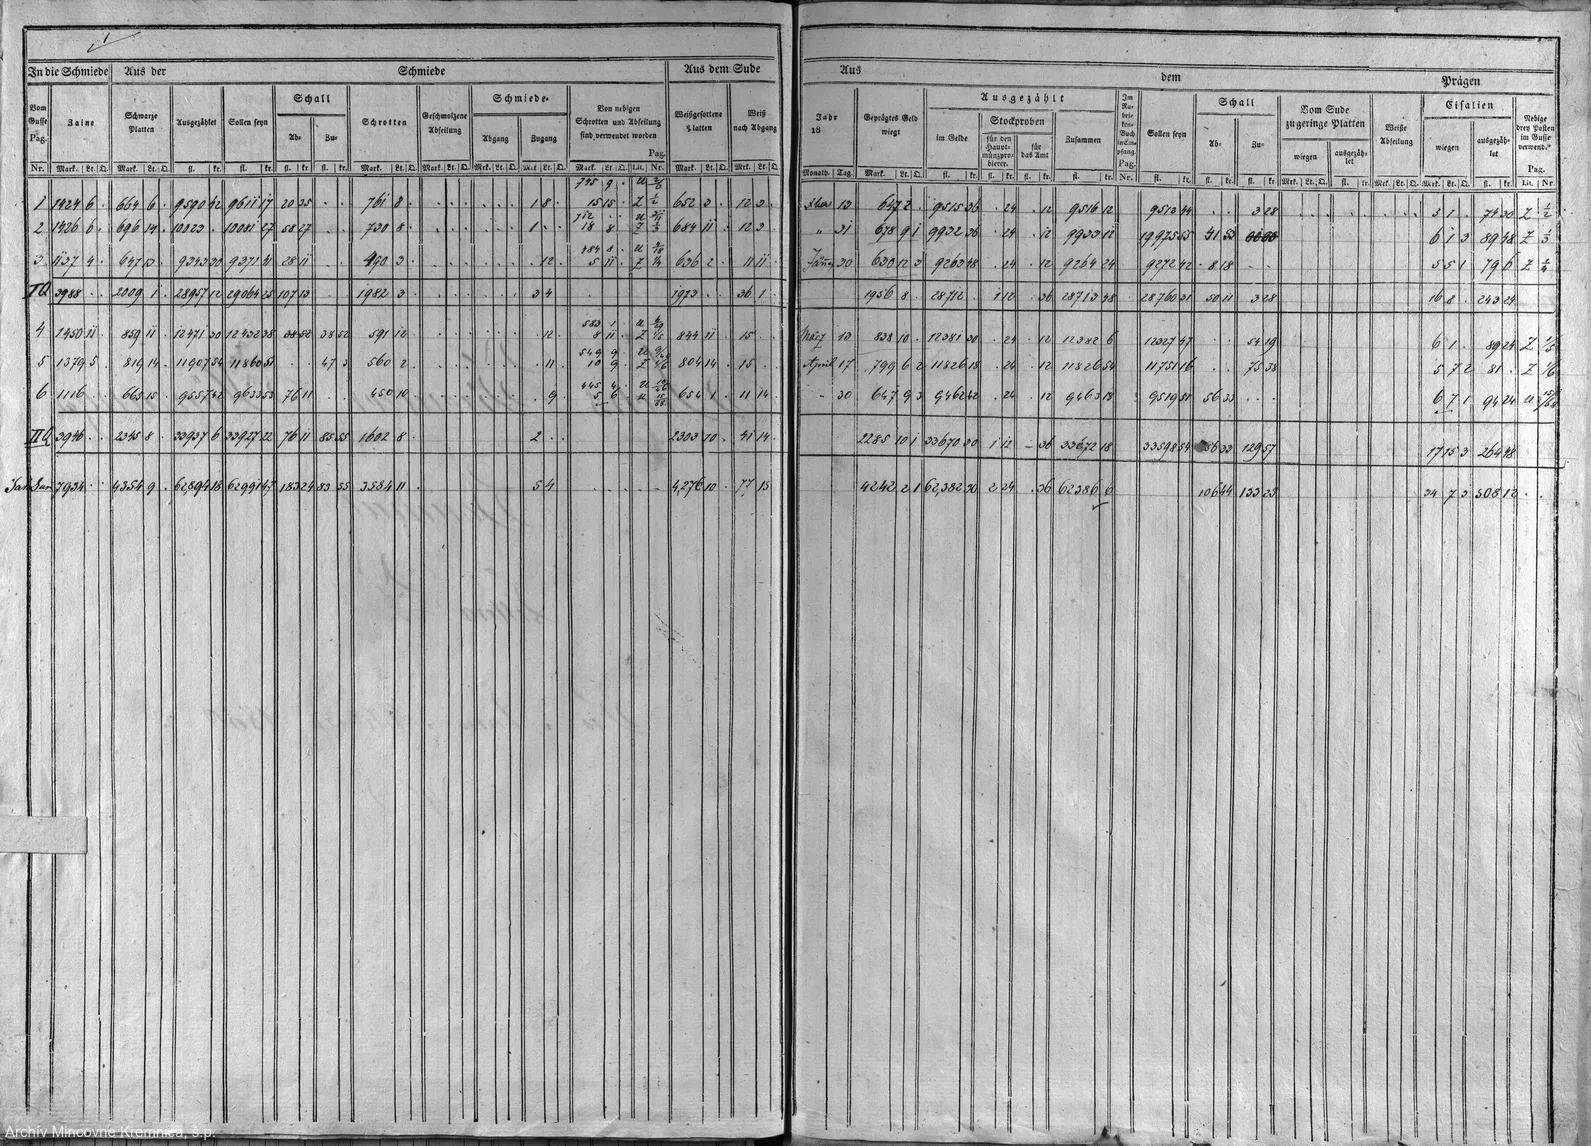 In die Schmiede Aus der Schmiede Aus dem Sude
Vom Gusse Pag. Nr.
Zaine Mark. Lt. Q.
Schwarze Platten Mark. Lt. Q.
Ausgezählet fl. kr.
Sollen seyn fl. kr.
Schall Ab- fl. kr. Zu- fl. kr.
Schrotten Mark. Lt. Q.
Geschmolzene Abseilung Mark. Lt. Q.
Schmiede- Abgang Mrk. Lt. Q. Zugang Mrk. Lt. Q.
Von nebigen Schrotten und Abseilung sind verwendet worden Mark. Lt. Q. Pag. Lit. Nr.
Weißgesottene Platten Mark. Lt. Q.
Weiß nach Abgang Mrk. Lt. Q.
1 1424 6 664 6 9590 42 9611 17 20 35 761 8 1 8 745 9 15 15 Z 652 3 12 3
2 1426 6 696 14 10023 10081 27 58 27 730 8 1 712 18 8 Z 684 11 12 3
3 1137 4 647 13 9343 30 9371 41 28 11 490 3 12 484 8 5 11 Z 636 2 11 11
I Q 3988 2009 1 28957 12 29064 25 107 13 1982 3 3 4 1973 36 1
4 1450 11 859 11 12471 30 12432 38 38 52 38 52 591 12 12 583 1 8 11 Z 844 11 15
5 1379 5 819 14 11907 54 11860 51 47 3 560 2 11 549 9 10 9 Z 804 14 15
6 1116 665 15 9557 42 9633 53 76 11 450 10 9 445 4 5 6 654 1 11 14
II Q 3946 2345 8 33937 6 33927 22 76 11 85 55 1602 8 2 2303 10 41 14
7934 4354 9 62,894 18 62991 47 183 24 83 55 3584 11 5 4 4,276 10 77 15
Aus dem Prägen
Jahr 18 Monath. Tag.
Geprägtes Geld wiegt Mark. Lt. Q.
Ausgezählt im Gelde fl. kr.
Stockproben für den Hauptmünzprobierer. fl. kr. für das Amt fl. kr.
Zusammen fl. kr.
Im Rubriken-Buch in Empfang. Pag. Nr.
Sollen seyn fl. kr.
Schall Ab- fl. kr. Zu- fl. kr.
Vom Sude zu geringe Platten wiegen Mrk. Lt. Q. ausgezählet fl. kr.
Weiße Abseilung Mrk. Lt. Q.
Cisalien wiegen Mrk. Lt. Q. ausgezählet fl. kr.
Nebige drey Posten im Gusse verwend. Pag. Lit. Nr.
13 647 2 9515 36 24 12 9516 12 9512 44 3 28 5 1 74 30 Z 1/2
" 31 678 9 1 9932 36 24 12 9933 12 9975 55 41 53 6 1 3 89 48 Z 1/3
30 630 12 3 9263 48 24 12 9264 24 9272 42 8 18 5 5 1 79 6 Z 1/4
1956 8 28712 1 12 36 28713 48 28760 31 50 11 3 28 16 8 243 24
März 13 838 10 12381 30 24 12 12382 6 12327 47 54 19 6 1 89 24 Z 1/5
April 17 799 6 2 11826 18 24 12 11826 54 11751 16 75 38 5 7 2 81 Z 1/6
" 30 647 9 3 9462 42 24 12 9463 18 9519 51 56 33 6 7 1 94 24
2285 10 1 33670 30 1 12 36 33672 18 33598 54 56 33 129 57 17 15 3 264 48
4242 2 1 62,382 30 2 24 36 62386 6 106 44 133 25 34 7 3 508 12
Archív Mincovne Kremnica, š.p.